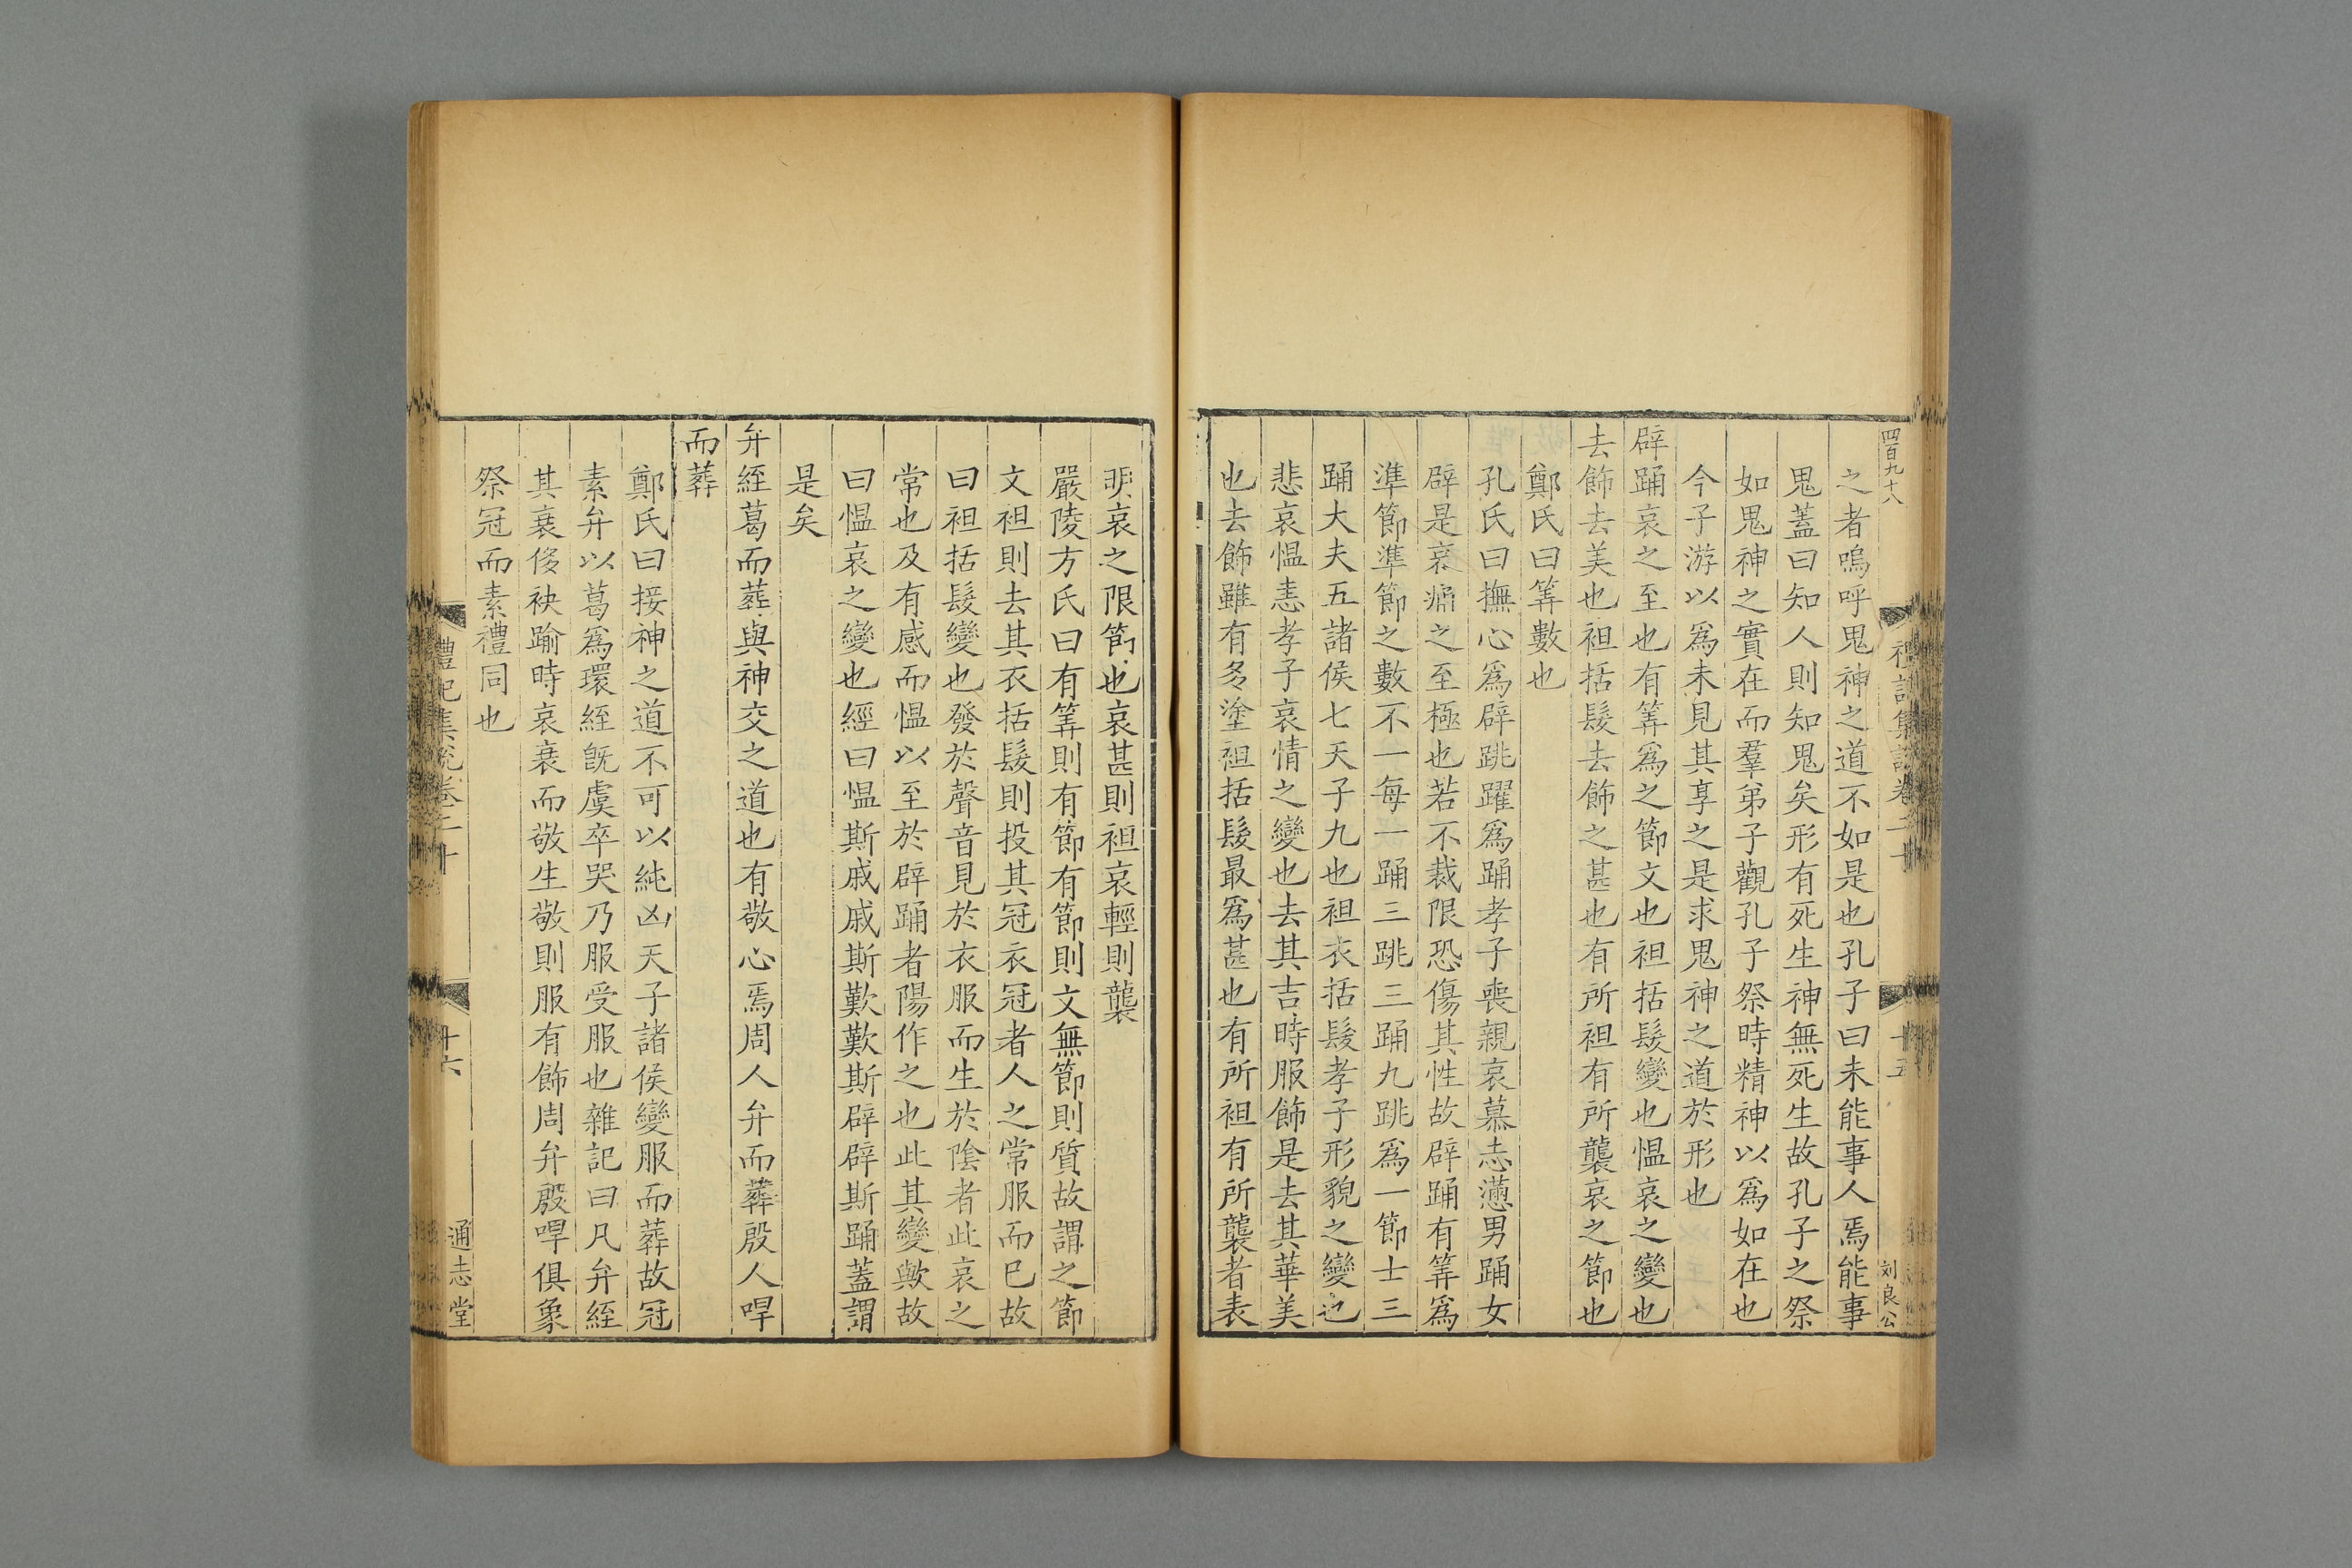 四百九十八
禮記集說卷二十
十五
刘良公
之者嗚呼鬼神之道不如是也孔子曰未能事人焉能事
鬼蓋曰知人則知鬼矣形有死生神無死生故孔子之祭
如鬼神之實在而羣弟子觀孔子祭時精神以爲如在也
今子游以爲未見其享之是求鬼神之道於形也
辟踊哀之至也有筭爲之節文也袒括髮變也愠哀之變也
去飾去美也袒括髮去飾之甚也有所袒有所襲哀之節也
鄭氏曰筭數也
孔氏曰撫心爲辟跳躍爲踊孝子喪親哀慕志懣男踊女
辟是哀痛之至極也若不裁限恐傷其性故辟踊有筭爲
準節準節之數不一每一踊三跳三踊九跳爲一節士三
踊大夫五諸侯七天子九也袒衣括髮孝子形貌之變也
悲哀愠恚孝子哀情之變也去其吉時服飾是去其華美
也去飾雖有多塗袒括髮最爲甚也有所袒有所襲者表
明哀之限節也哀甚則袒哀輕則襲
嚴陵方氏曰有筭則有節有節則文無節則質故謂之節
文袒則去其衣括髮則投其冠衣冠者人之常服而已故
曰袒括髮變也發於聲音見於衣服而生於陰者此哀之
常也及有感而愠以至於辟踊者陽作之也此其變歟故
曰愠哀之變也經曰愠斯戚戚斯歎歎斯辟辟斯踊蓋謂
是矣
弁絰葛而葬與神交之道也有敬心焉周人弁而葬殷人哻
而葬
鄭氏曰接神之道不可以純凶天子諸侯變服而葬故冠
素弁以葛爲環絰旣虞卒哭乃服受服也雜記曰凡弁絰
其衰侈袂踰時哀衰而敬生敬則服有飾周弁殷哻俱象
祭冠而素禮同也
禮記集說卷二十
十六
通志堂